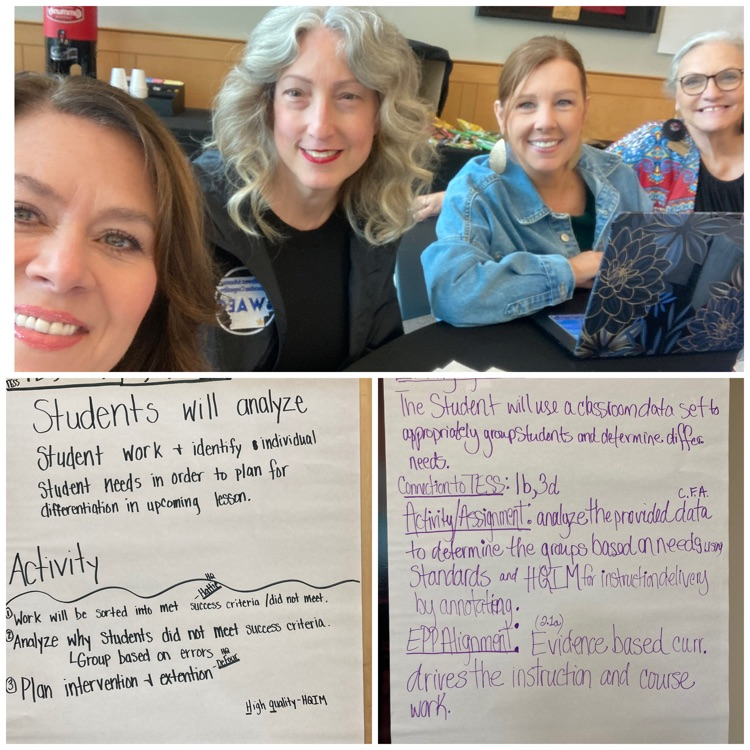 Students will analyze
Student work + identify individual
Student needs in order to plan for
differentiation in upcoming lesson.
Activity
HQ
-Hattie
① Work will be sorted into met success criteria / did not meet.
② Analyze why students did not meet success criteria.
↳ Group based on errors HQ
DuFour
③ Plan intervention + extention
High Quality-HQIM
The Student will use a classroom data set to
appropriately group students and determine
needs.
Connection to TESS: 1b, 3d
C.F.A.
Activity/Assignment: analyze the provided data
to determine the groups based on needs using
Standards and HQIM for instruction delivery
by annotating.
(21a)
EPP Alignment: Evidence based curr.
drives the instruction and course
work.